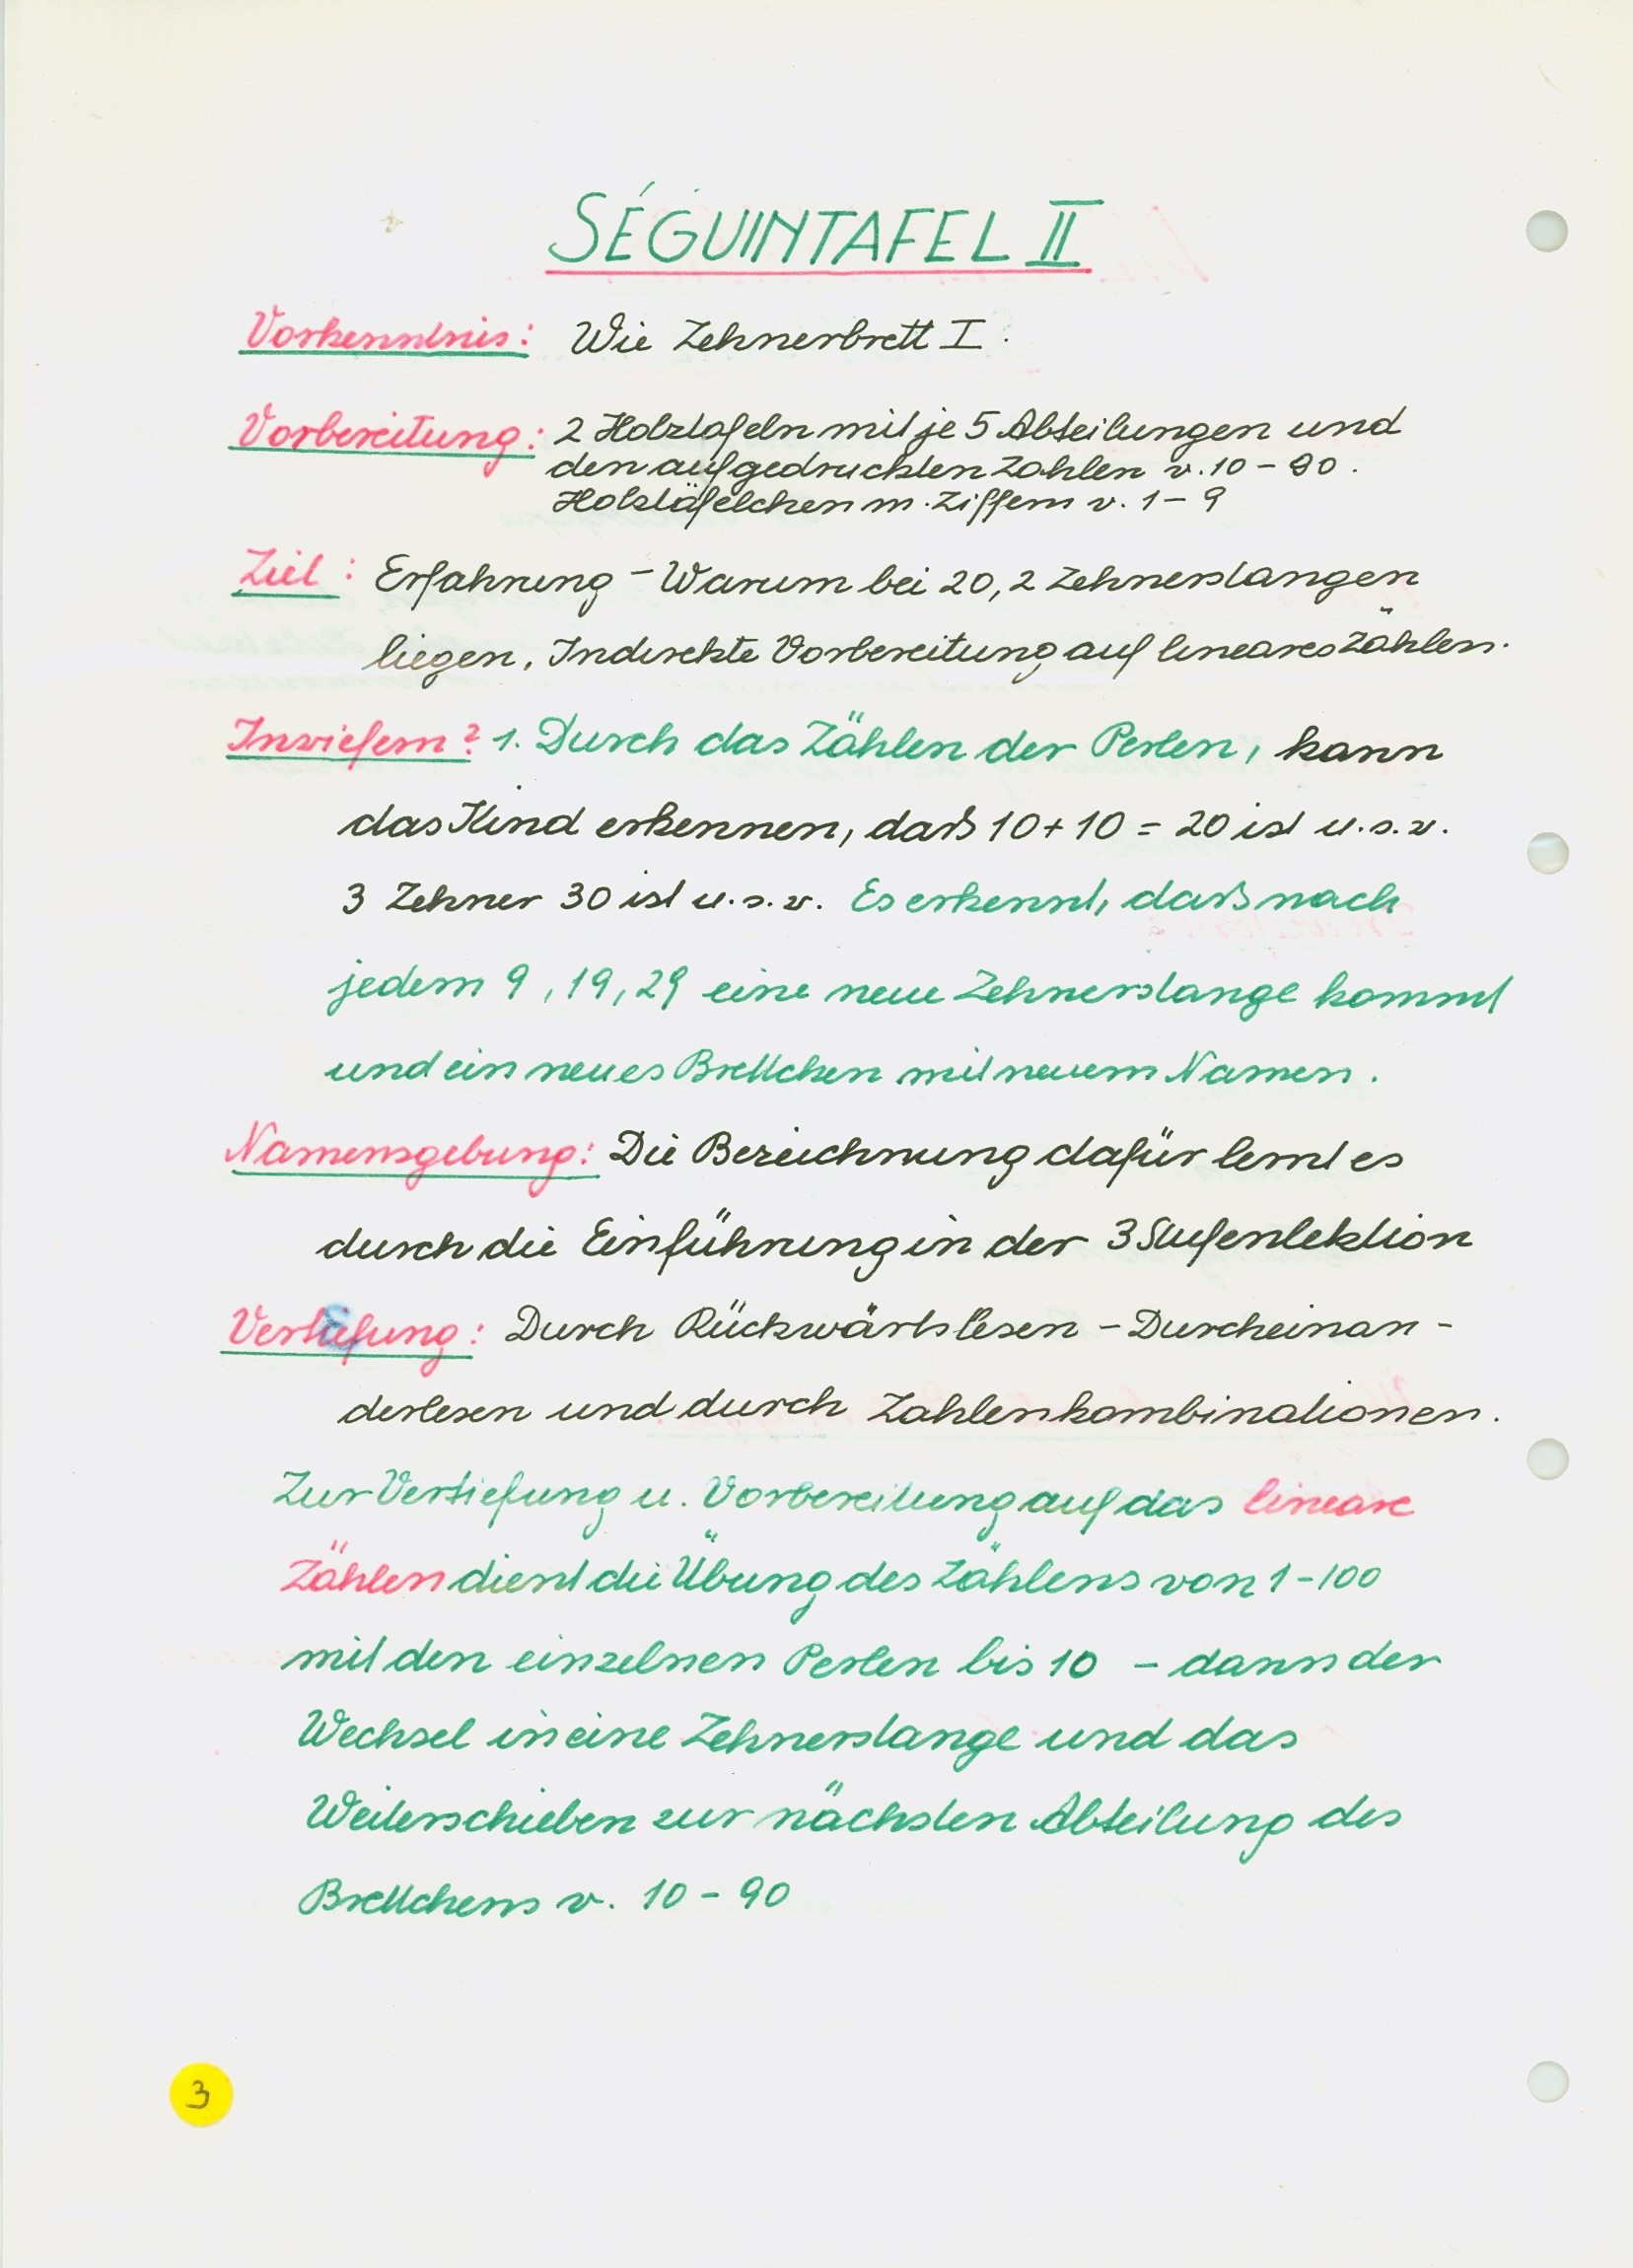 SÉGUINTAFEL II
Vorkenntnis: Wie Zehnerbrett I.
Vorbereitung: 2 Holztafeln mit je 5 Abteilungen und
den aufgedruckten Zahlen v. 10 - 90.
Holztäfelchen m. Ziffern v. 1 - 9
Ziel: Erfahrung - Warum bei 20, 2 Zehnerstangen
liegen, Indirekte Vorbereitung auf lineares Zählen.
Inwiefern? 1. Durch das Zählen der Perlen, kann
das Kind erkennen, daß 10 + 10 = 20 ist u.s.w.
3 Zehner 30 ist u.s.w. Es erkennt, daß nach
jedem 9, 19, 29 eine neue Zehnerstange kommt
und ein neues Brettchen mit neuem Namen.
Namensgebung: Die Bezeichnung dafür lernt es
durch die Einführung in der 3 Stufenlektion
Vertiefung: Durch Rückwärtslesen - Durcheinan-
derlesen und durch Zahlenkombinationen.
Zur Vertiefung u. Vorbereitung auf das lineare
Zählen dient die Übung des Zählens von 1 - 100
mit den einzelnen Perlen bis 10 - dann der
Wechsel in eine Zehnerstange und das
Weiterschieben zur nächsten Abteilung des
Brettchens v. 10 - 90
3